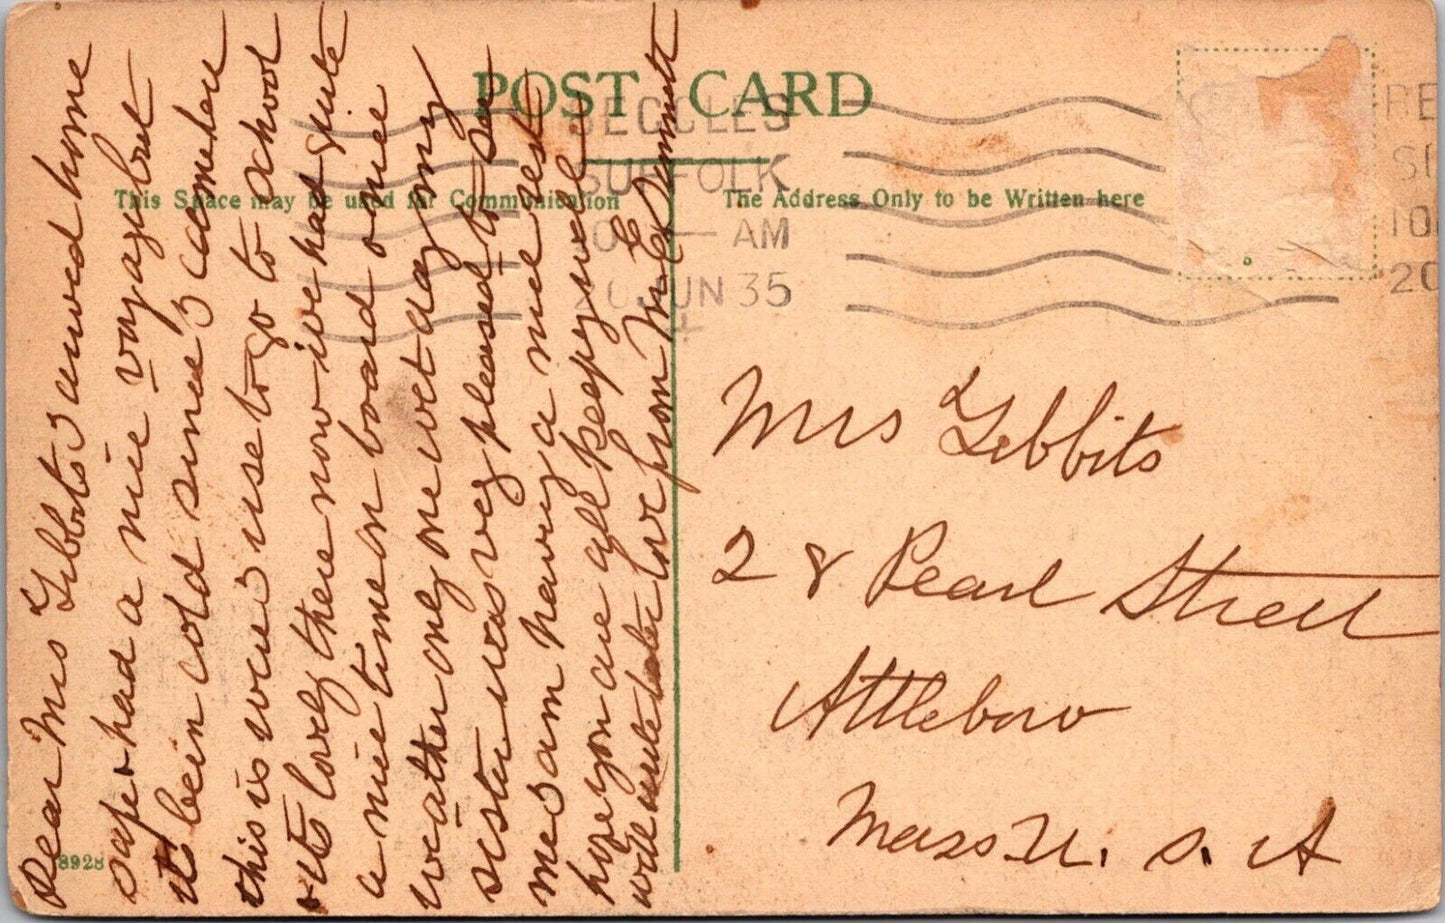 POST CARD
This Space may be used for Communication
The Address Only to be Written here
BECCLES
SUFFOLK
10 — AM
20 JUN 35
Dear Mrs Gebbits arrived home
safe + had a nice voyage but
its been cold since I came here
this is were I use to go to school
its lovely there now we had quite
a nice time on board once
weather only one wet day my
sister was very pleased to see
me I am having a nice rest
hope you are all keeping well
will write later love from M E Sennett
8928
Mrs Gebbits
28 Pearl Street
Attleboro
Mass U. S. A